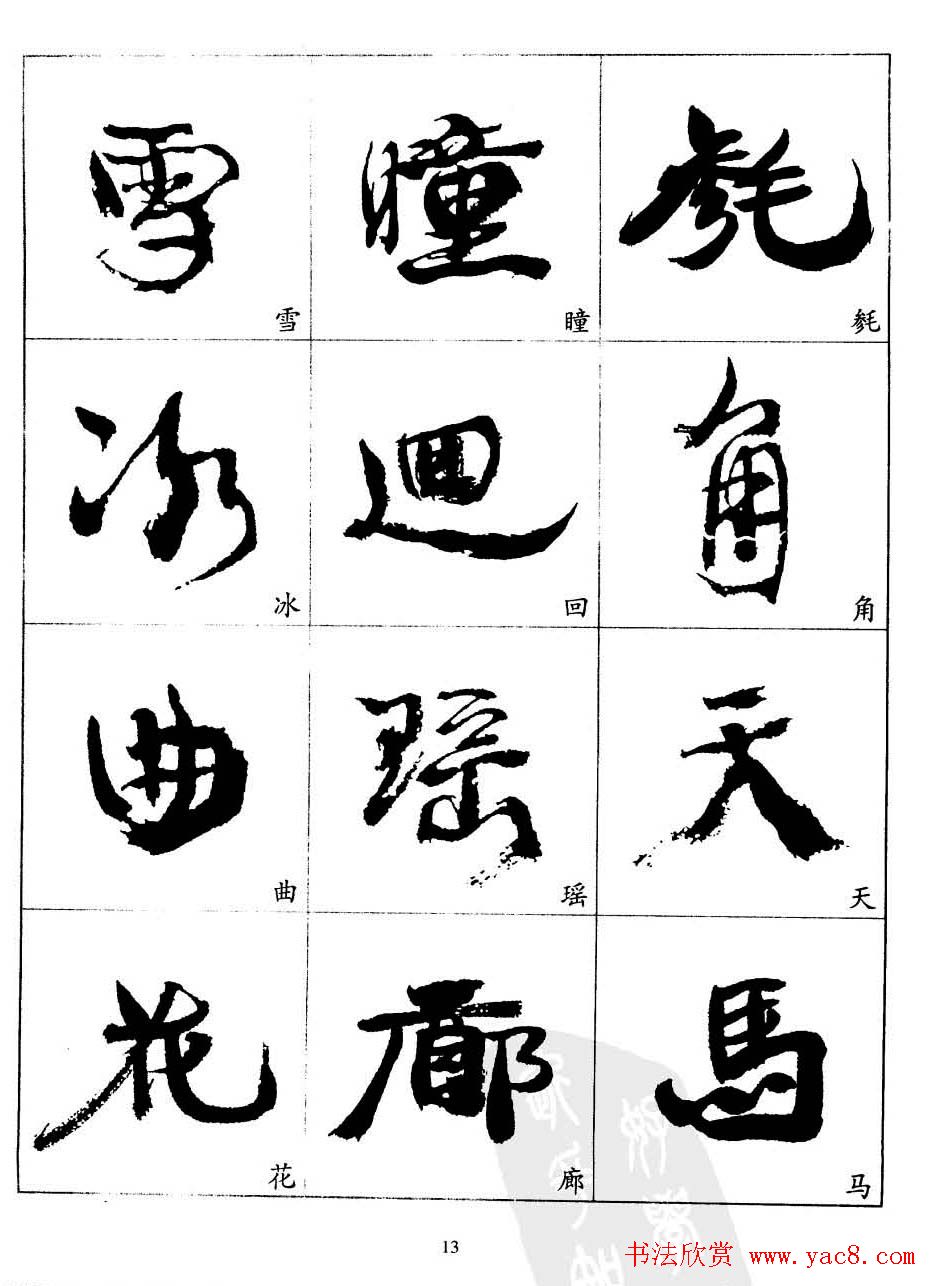 雪 瞳 毵
雪 瞳 毵
冰 迴 角
冰 回 角
曲 瑶 天
曲 瑶 天
花 廊 馬
花 廊 马
13
书法欣赏 www.yac8.com